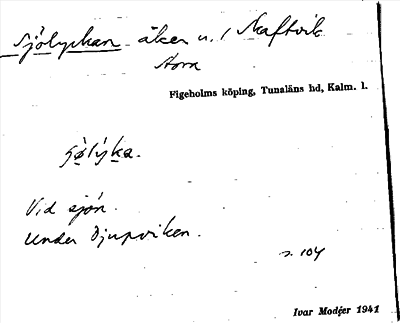 Sjölyckan åker u. 1 Naftvik
Norra
Figeholms köping, Tunaläns hd, Kalm. l.
Vid sjön.
Under Djupviken.
s. 104
Ivar Modéer 1941